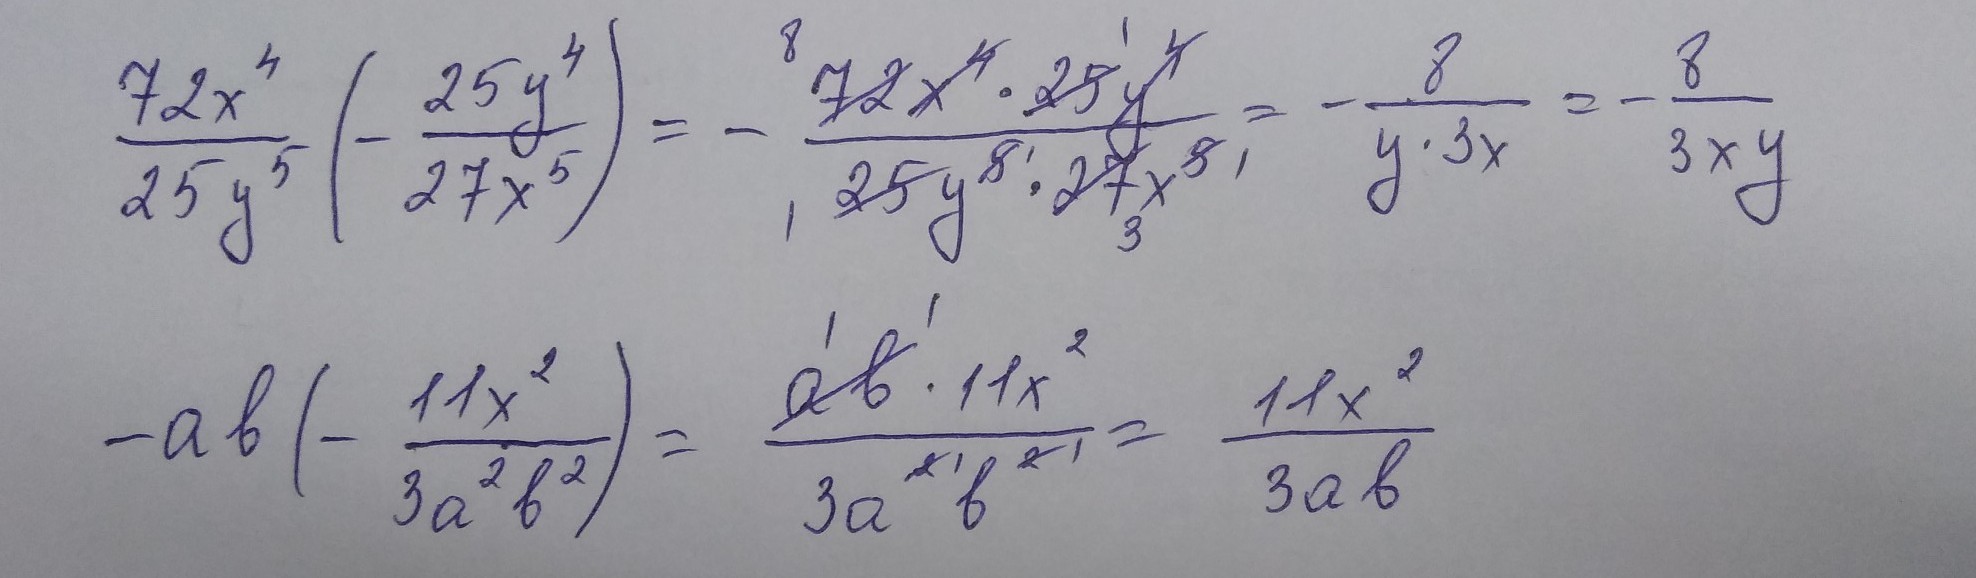 72x⁴/25y⁵ (- 25y⁴/27x⁵) = - 72x⁴ · 25y⁴/25y⁵ · 27x⁵ = - 8/y · 3x = - 8/3xy
-ab (- 11x²/3a²b²) = ab · 11x²/3a²b² = 11x²/3ab